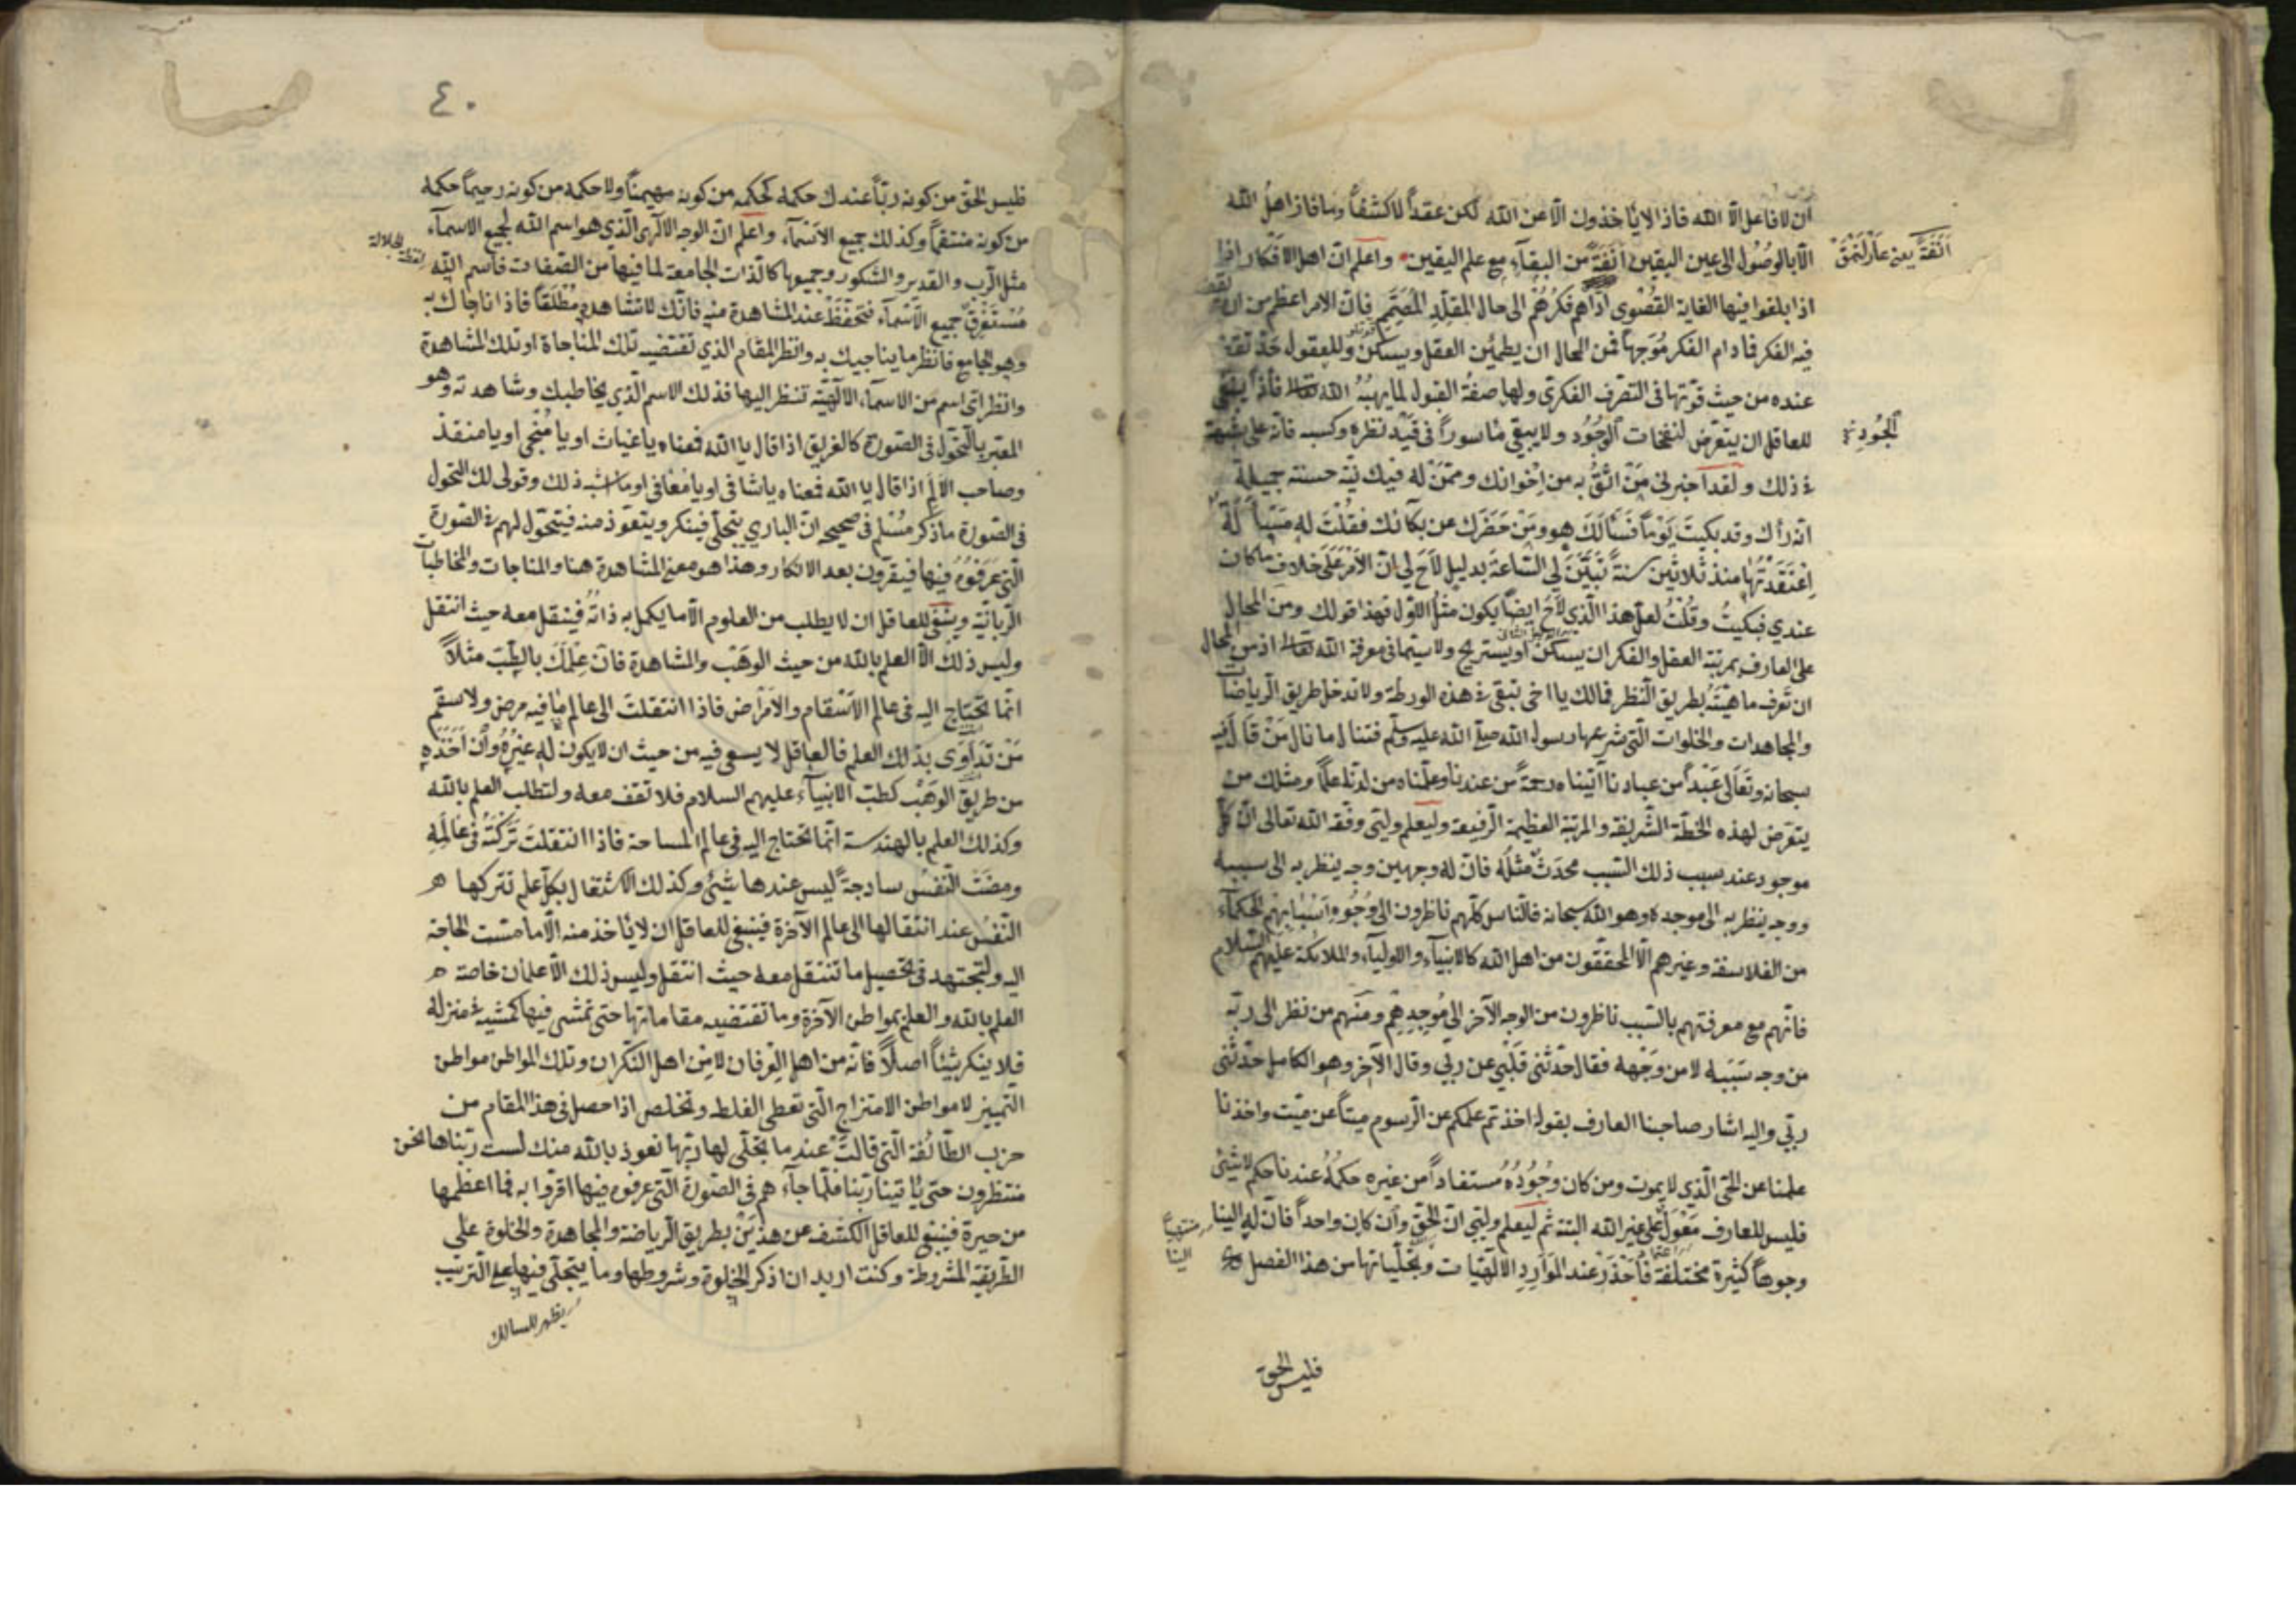 ان لا فاعل الا الله فاذا لا يأخذون الا عن الله لكن عقداً لا كشفاً وما فاز اهل الله
الا بالوصول الى عين اليقين انفةً من البقآء مع علم اليقين واعلم ان اهل الافكار
انفة يعني عار
اذا بلغوا فيها الغاية القصوى اداهم فكرهم الى حال المقلد المصمم فان الامر اعظم من ان يقف
فيه الفكر فما دام الفكر موجها فمن المحال ان يطمئن العقل ويسكن وللعقول حد تقف
عنده من حيث قوتها في التصرف الفكري ولها صفة القبول لما يهبه الله تعالى فاذا ينبغي
للعاقل ان يتعرض لنفحات الوجود ولا يبقى مأسوراً في قيد نظره وكسبه فانه على شبهة
الجود
في ذلك ولقد اخبرني من اثق به من اخوانك وممن له فيك نية حسنة جميلة
انه رأك وقد بكيت يوماً فسألك هو ومن حضرك عن بكائك فقلت له مسئلة
اعتقدتها منذ ثلاثين سنة تبين لي الساعة بدليل لاح لي ان الامر على خلاف ما كان
عندي فبكيت وقلت لعل هذا الذي لاح ايضاً يكون مثل الاول فهذا قولك ومن المحال
على العارف بمرتبة العقل والفكر ان يسكن او يستريح ولا سيما في معرفة الله تعالى اذ من المحال
ان تعرف ماهيته بطريق النظر فما لك يا اخي تبقى في هذه الورطة ولا تدخل طريق الرياضات
والمجاهدات والخلوات التي شرعها رسول الله صلى الله عليه وسلم فتنال ما نال من قال فيه
سبحانه وتعالى عبداً من عبادنا آتيناه رحمةً من عندنا وعلمناه من لدنا علماً ومثلك من
يتعرض لهذه الخطة الشريفة والمرتبة العظيمة الرفيعة وليعلم وليي وفقه الله تعالى ان كل
موجود عند سبب ذلك السبب محدث مثله فان له وجهين وجه ينظر به الى سببه
ووجه ينظر به الى موجده وهو الله سبحانه فالناس كلهم ناظرون الى وجوه اسبابهم الحكمآء
من الفلاسفة وغيرهم الا المحققون من اهل الله كالانبيآء والاوليآء والملائكة عليهم السلام
فانهم مع معرفتهم بالسبب ناظرون من الوجه الآخر الى موجدهم ومنهم من نظر الى ربه
من وجه سببه لا من وجهه فقال حدثني قلبي عن ربي وقال الآخر وهو الكامل حدثني
ربي واليه اشار صاحبنا العارف بقوله اخذتم علمكم عن الرسوم ميتاً عن ميت واخذنا
علمنا عن الحي الذي لا يموت ومن كان وجوده مستفاداً من غيره حكمه عندنا حكم لا شئ
فليس للعارف معول على غير الله البتة ثم ليعلم وليي ان الحق وان كان واحداً فان له الينا
وجوهاً كثيرة مختلفة فاحذر عند الموارد الالهيات وتجلياتها من هذا الفصل
فليس الحق
٤٠
فليس الحق من كونه رباً عندك حكمه كحكمه من كونه مهيمناً ولا حكمه من كونه رحيماً حكمه
من كونه منتقماً وكذلك جميع الاسمآء واعلم ان الوجه الالهي الذي هو اسم الله لجميع الاسمآء
لفظة الجلالة
مثل الرب والقدير والشكور وجميعها كالذات الجامعة لما فيها من الصفات فاسم الله
مستغرق جميع الاسمآء فتحفظ عند المشاهدة منه فانك لا تشاهده مطلقاً فاذا ناجاك به
وهو الجامع فانظر ما يناجيك به وانظر المقام الذي تقتضيه تلك المناجاة او تلك المشاهدة
وانظر اي اسم من الاسمآء الالهية تنظر اليها فذلك الاسم الذي يخاطبك وشاهدته وهو
المعبر بالتحول في الصورة كالغريق اذا قال يا الله فمعناه يا غياث او يا منجي او يا منقذ
وصاحب الالم اذا قال يا الله فمعناه يا شافي او يا معافي او ما اشبه ذلك وقولي لك التحول
في الصورة ما ذكر مسلم في صحيحه ان الباري يتجلى فينكر ويتعوذ منه فيتحول لهم في الصورة
التي عرفوه فيها فيقرون بعد الانكار وهذا هو معنى المشاهدة هنا والمناجات والمخاطبات
الربانية وينبغي للعاقل ان لا يطلب من العلوم الا ما يكمل به ذاته فينقل معه حيث انتقل
وليس ذلك الا العلم بالله من حيث الوهب والمشاهدة فان علمك بالطب مثلاً
انما تحتاج اليه في عالم الاسقام والامراض فاذا انتقلت الى عالم ما فيه مرض ولا سقم
من تداوى بذلك العلم فالعاقل لا يسعى فيه من حيث ان لا يكون له غيره وان اخذه
من طريق الوهب كطب الانبيآء عليهم السلام فلا تقف معه ولتطلب العلم بالله
وكذلك العلم بالهندسة انما تحتاج اليه في عالم المساحة فاذا انتقلت تركته في عالمه
ومضت النفس ساذجة ليس عندها شئ وكذلك الاشتغال بكل علم تتركها
النفس عند انتقالها الى عالم الآخرة فينبغي للعاقل ان لا يأخذ منه الا ما مست الحاجة
اليه ولتجتهد في تحصيل ما تنتقل معه حيث انتقل وليس ذلك الا علمان خاصة
العلم بالله والعلم بمواطن الآخرة وما تقتضيه مقاماتها حتى تمشي فيها كمشيه في منزله
فلا ينكر شيئاً اصلاً فانه من اهل العرفان لا من اهل النكران وتلك المواطن مواطن
التمييز لا مواطن الامتزاج التي تعطى الغلط وتخلص اذا حصل في هذا المقام من
حزب الطائفة التي قالت عند ما تجلى لها ربها نعوذ بالله منك لست ربنا ها نحن
منتظرون حتى يأتينا ربنا فلما جآء هم في الصورة التي عرفوه فيها اقروا به فما اعظمها
من حيرة فينبغي للعاقل الكشف عن هذين بطريق الرياضة والمجاهدة والخلوة على
الطريقة المشروطة وكنت اريد ان اذكر الخلوة وشروطها وما يتجلى فيها على الترتيب
يظهر للسالك